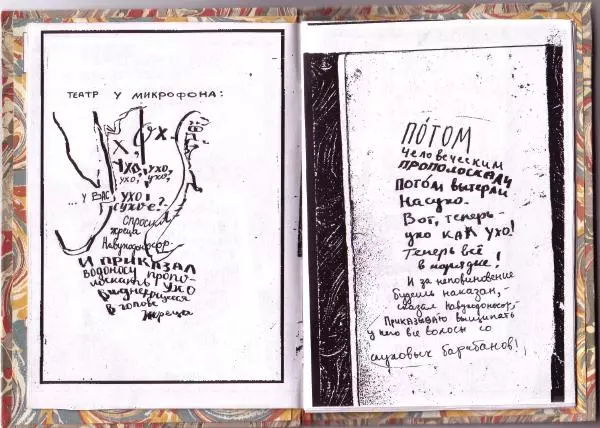 ТЕАТР У МИКРОФОНА:
Х, ОХ.
УХО, УХО,
УХО, УХО,
... У ВАС УХО
СУХОЕ?
Спросил
жреца
Навуходоносор.
И ПРИКАЗАЛ
ВОДОНОСУ ПРОПО-
ЛОСКАТЬ УХО
в голове
жреца
ПО́ТОМ
человеческим
ПРОПОЛОСКАЛИ
ПОТОМ вытерли
Насухо.
Вот, теперь-
ухо КАК УХО!
Теперь всё
в порядке!
И за неповиновение
будешь наказан,-
сказал Навуходоносор,-
Приказываю выщипать
у него все волосы со
слуховых барабанов!